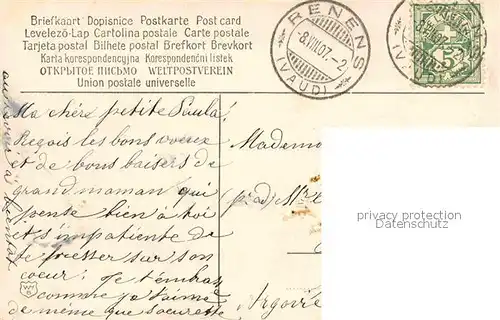 Briefkaart Dopisnice Postkarte Post card
Levelező-Lap Cartolina postale Carte postale
Tarjeta postal Bilhete postal Brefkort Brevkort
Karta korespondencyjna Korespondenční lístek
ОТКРЫТОЕ ПИСЬМО WELTPOSTVEREIN
Union postale universelle
RENENS
8.VIII.07.-2
(VAUD)
Ma chère petite Paula!
Reçois les bons voeux
et de bons baisers de
grand maman qui
pense bien à toi
et s'impatiente de
te presser sur son
coeur! Je t'embrasse
comme je t'aime
de même que soeurette
au revoir à bientôt
Madem
(p. ad) Mr
Argovie
privacy protection
Datenschutz